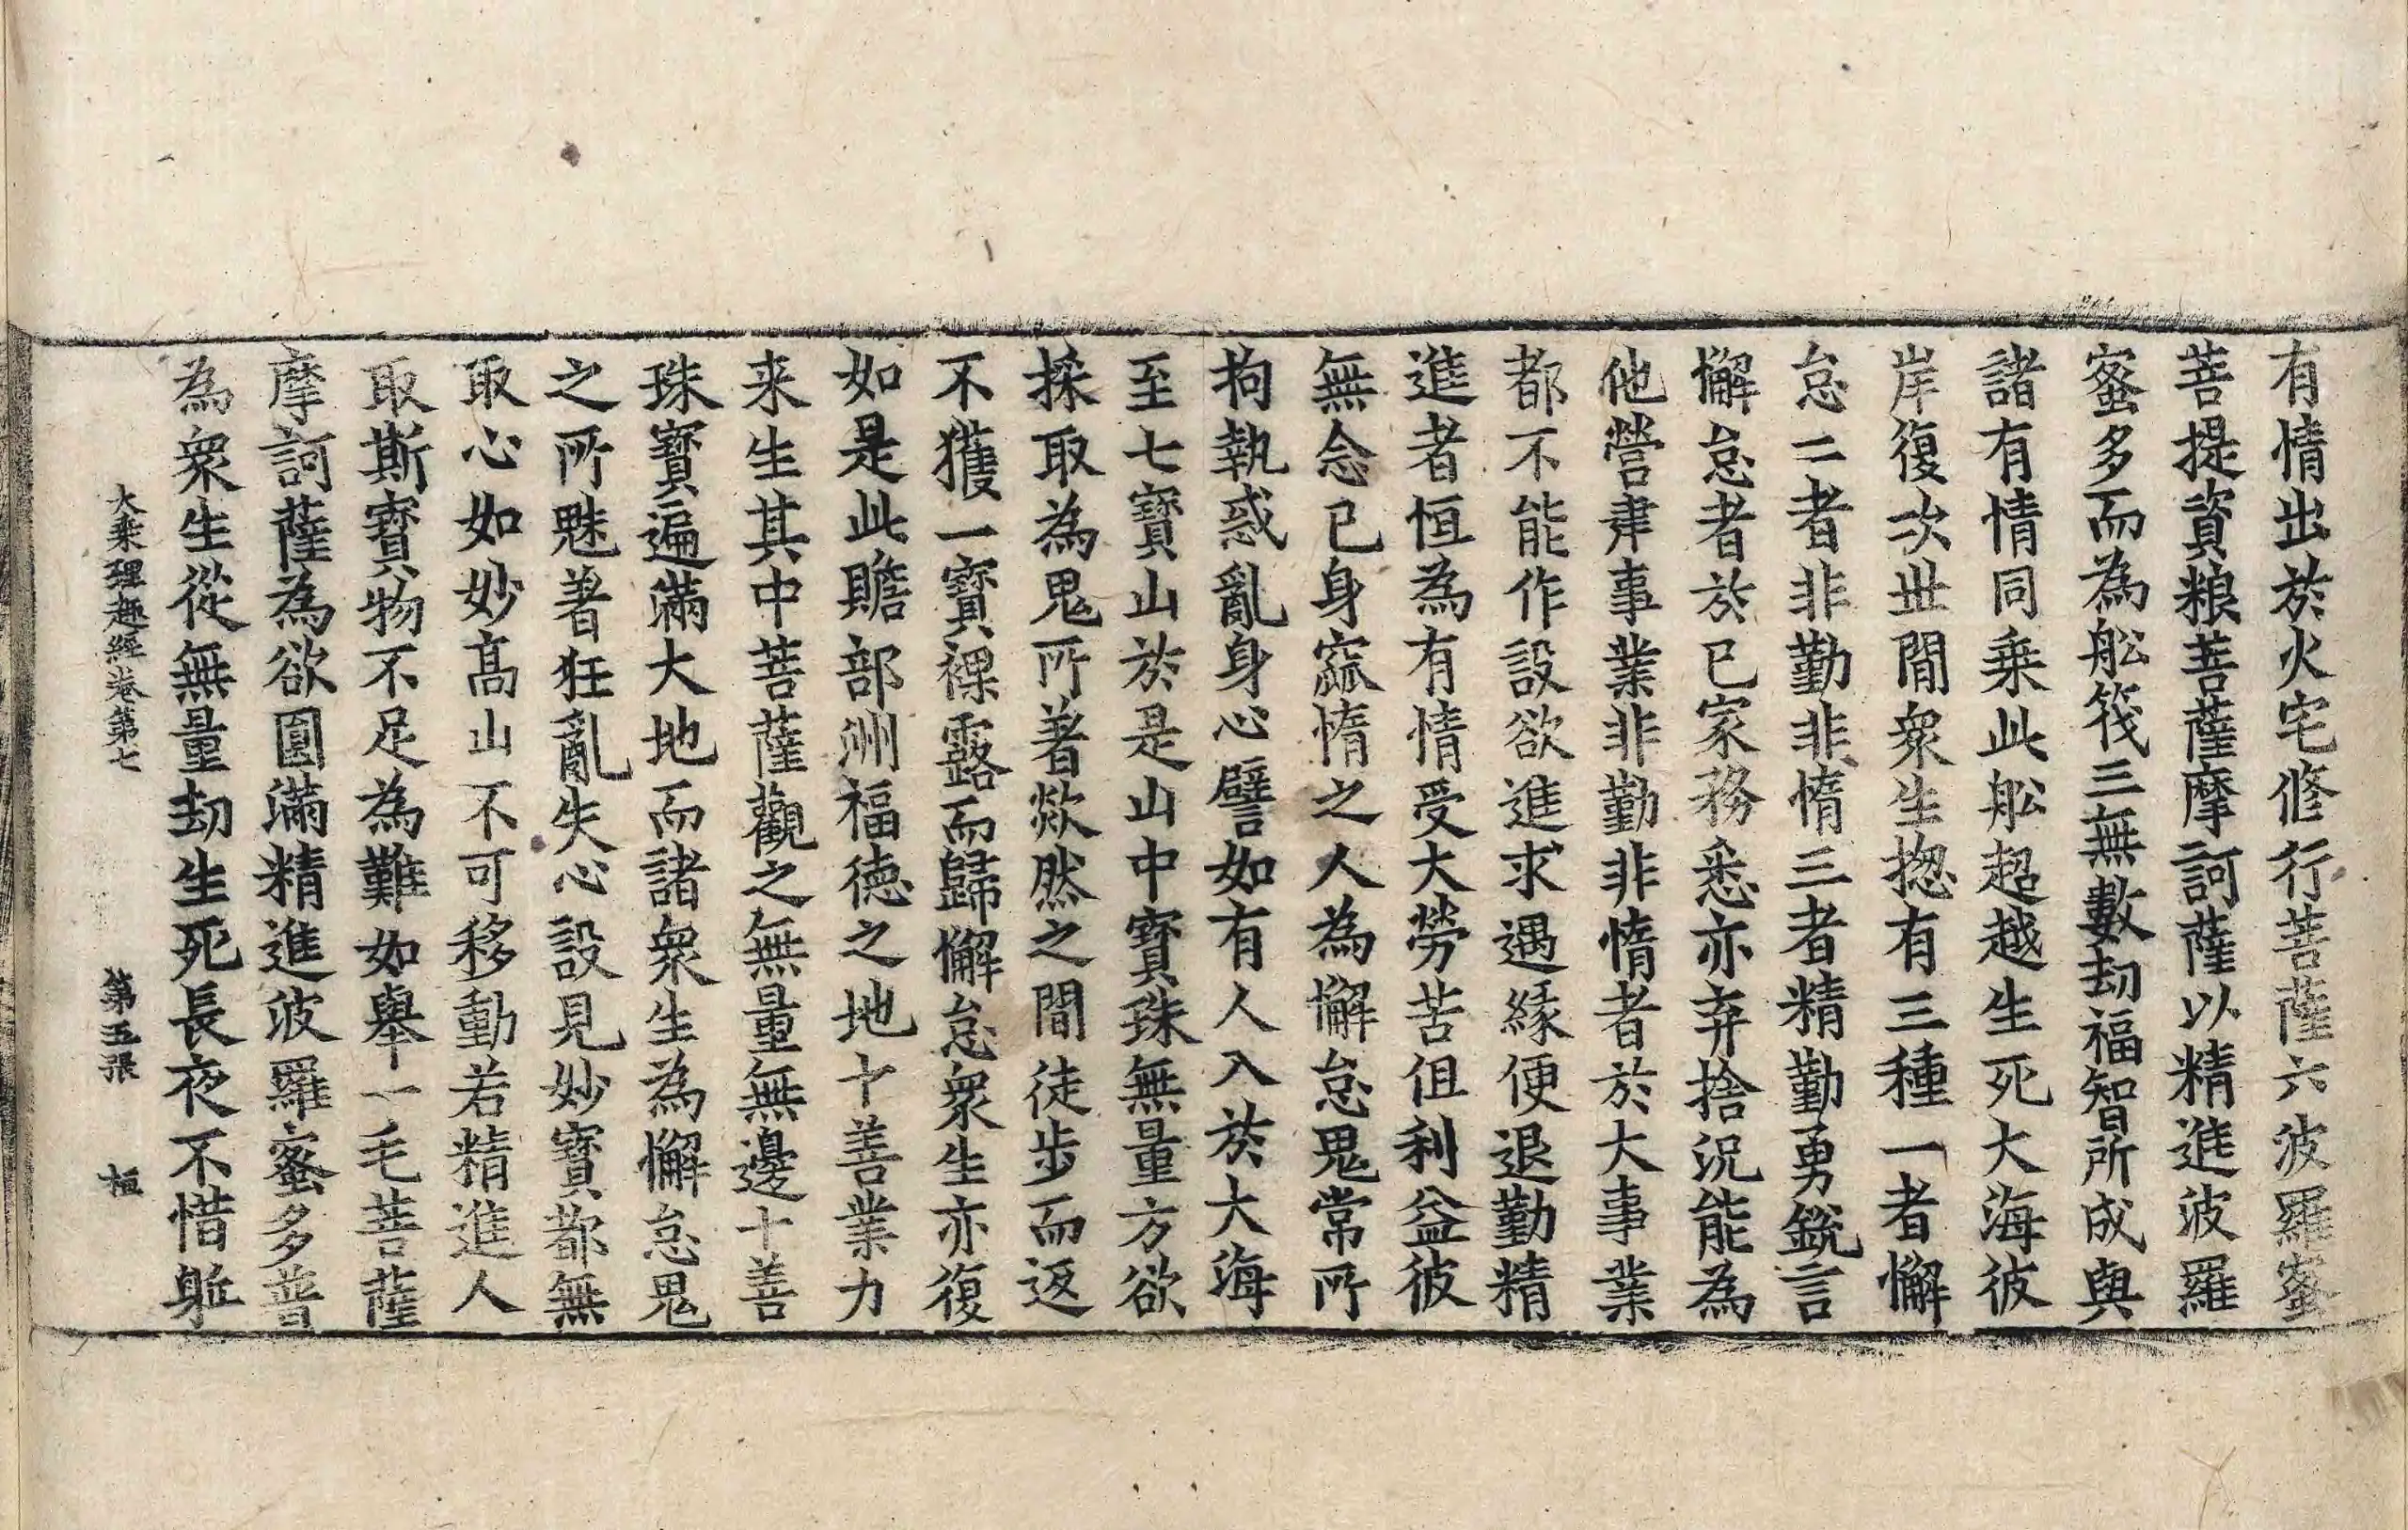 有情出於火宅修行菩薩六波羅蜜
菩提資粮菩薩摩訶薩以精進波羅
蜜多而為舩筏三無數劫福智所成與
諸有情同乗此舩超越生死大海彼
岸復次丗間衆生揔有三種一者懈
怠二者非勤非惰三者精勤勇銳言
懈怠者於已家務悉亦弃捨況能為
他營建事業非勤非惰者於大事業
都不能作設欲進求遇縁便退勤精
進者恒為有情受大勞苦伹利益彼
無念已身窳惰之人為懈怠鬼常所
拘執惑亂身心譬如有人入於大海
至七寶山於是山中寶珠無量方欲
採取為鬼所著欻然之間徒步而返
不獲一寶裸露而歸懈怠衆生亦復
如是此贍部洲福德之地十善業力
来生其中菩薩觀之無量無邊十善
珠寶遍滿大地而諸衆生為懈怠鬼
之所魅著狂亂失心設見妙寶都無
取心如妙髙山不可移動若精進人
取斯寶物不足為難如舉一毛菩薩
摩訶薩為欲圓滿精進波羅蜜多普
為衆生從無量劫生死長夜不惜軀
大乗理趣經卷第七 第五張 桓